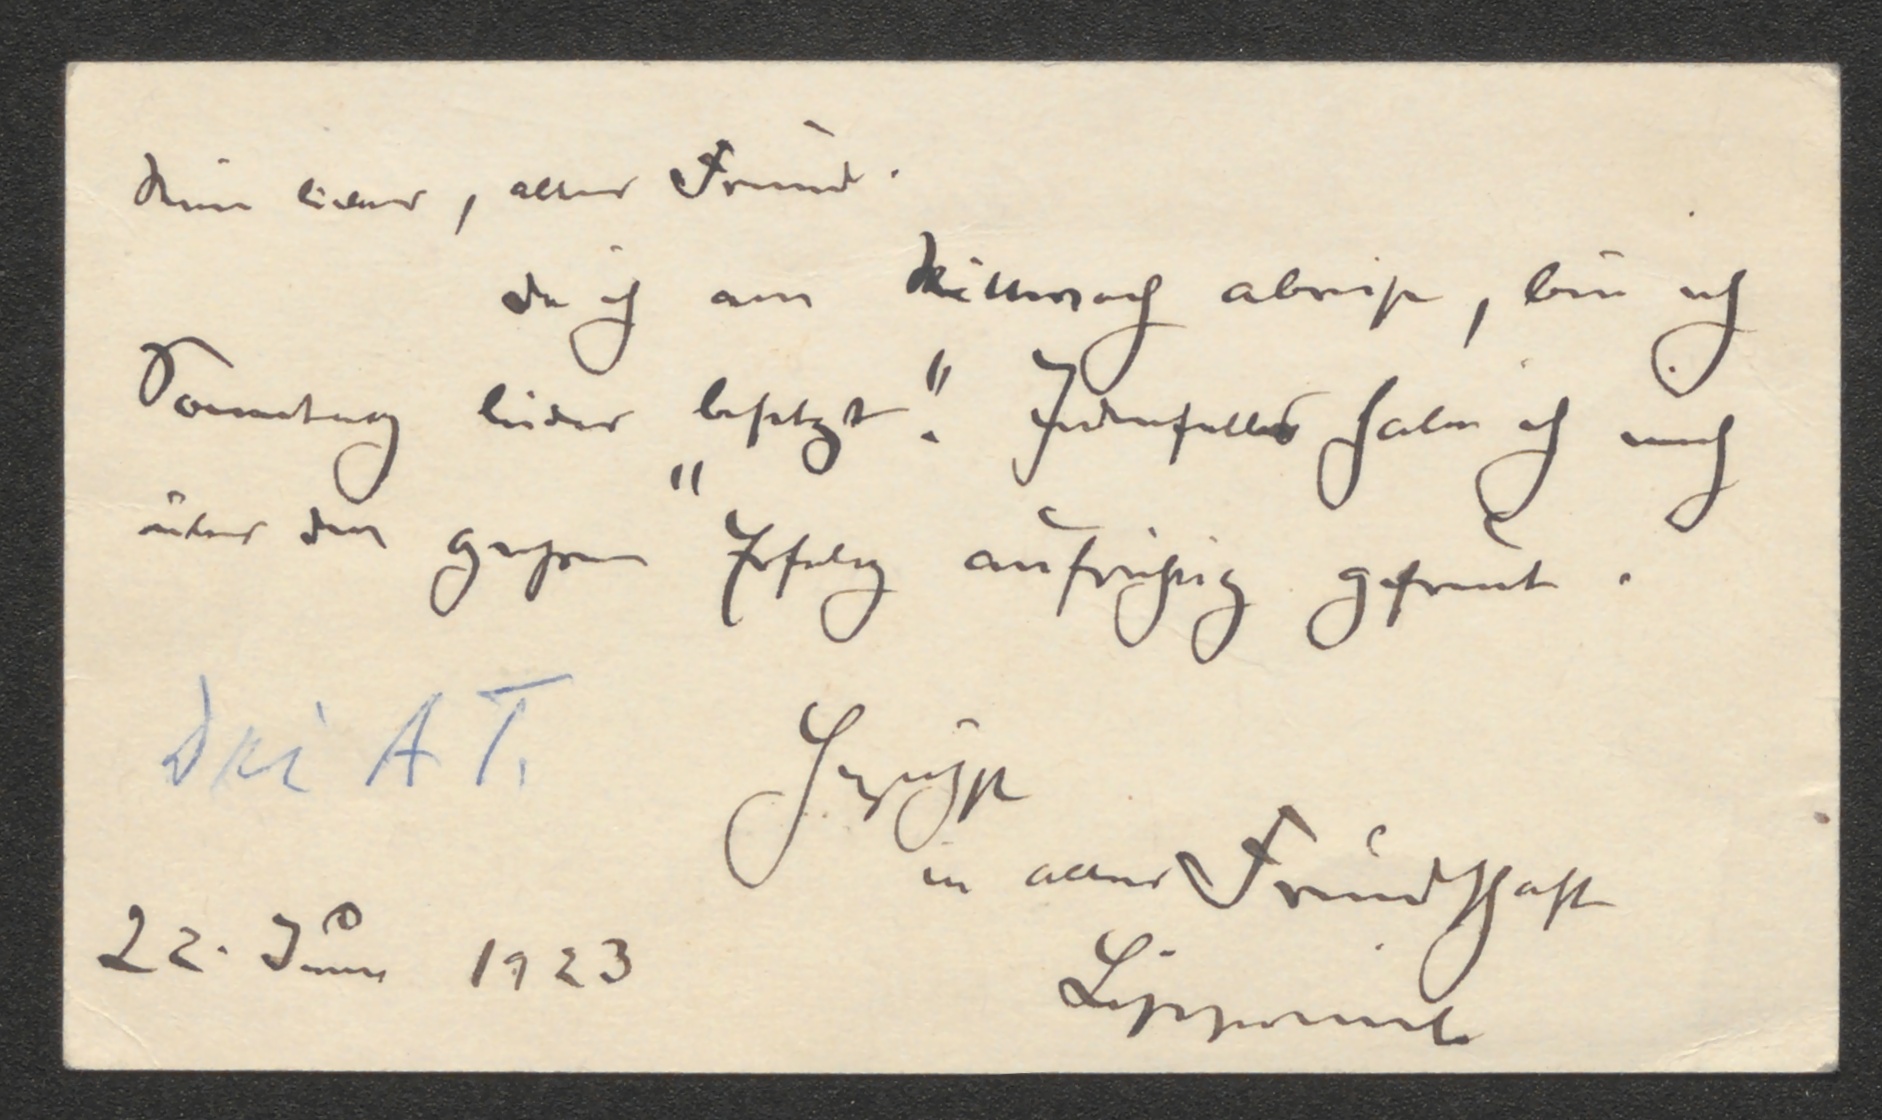 Mein lieber, alter Freund.
da ich am Mittwoch abreise, bin ich
Sonntag leider "besetzt". Jedenfalls habe ich mich
über den großen Erfolg aufrichtig gefreut.
Drei A T.
Herzlichst
in alter Freundschaft
22. Juni 1923